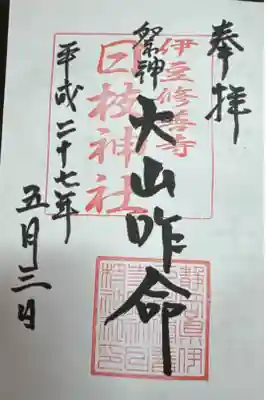 奉拝
伊豆修善寺
日枝神社
祭神 大山咋命
平成二十七年
五月三日